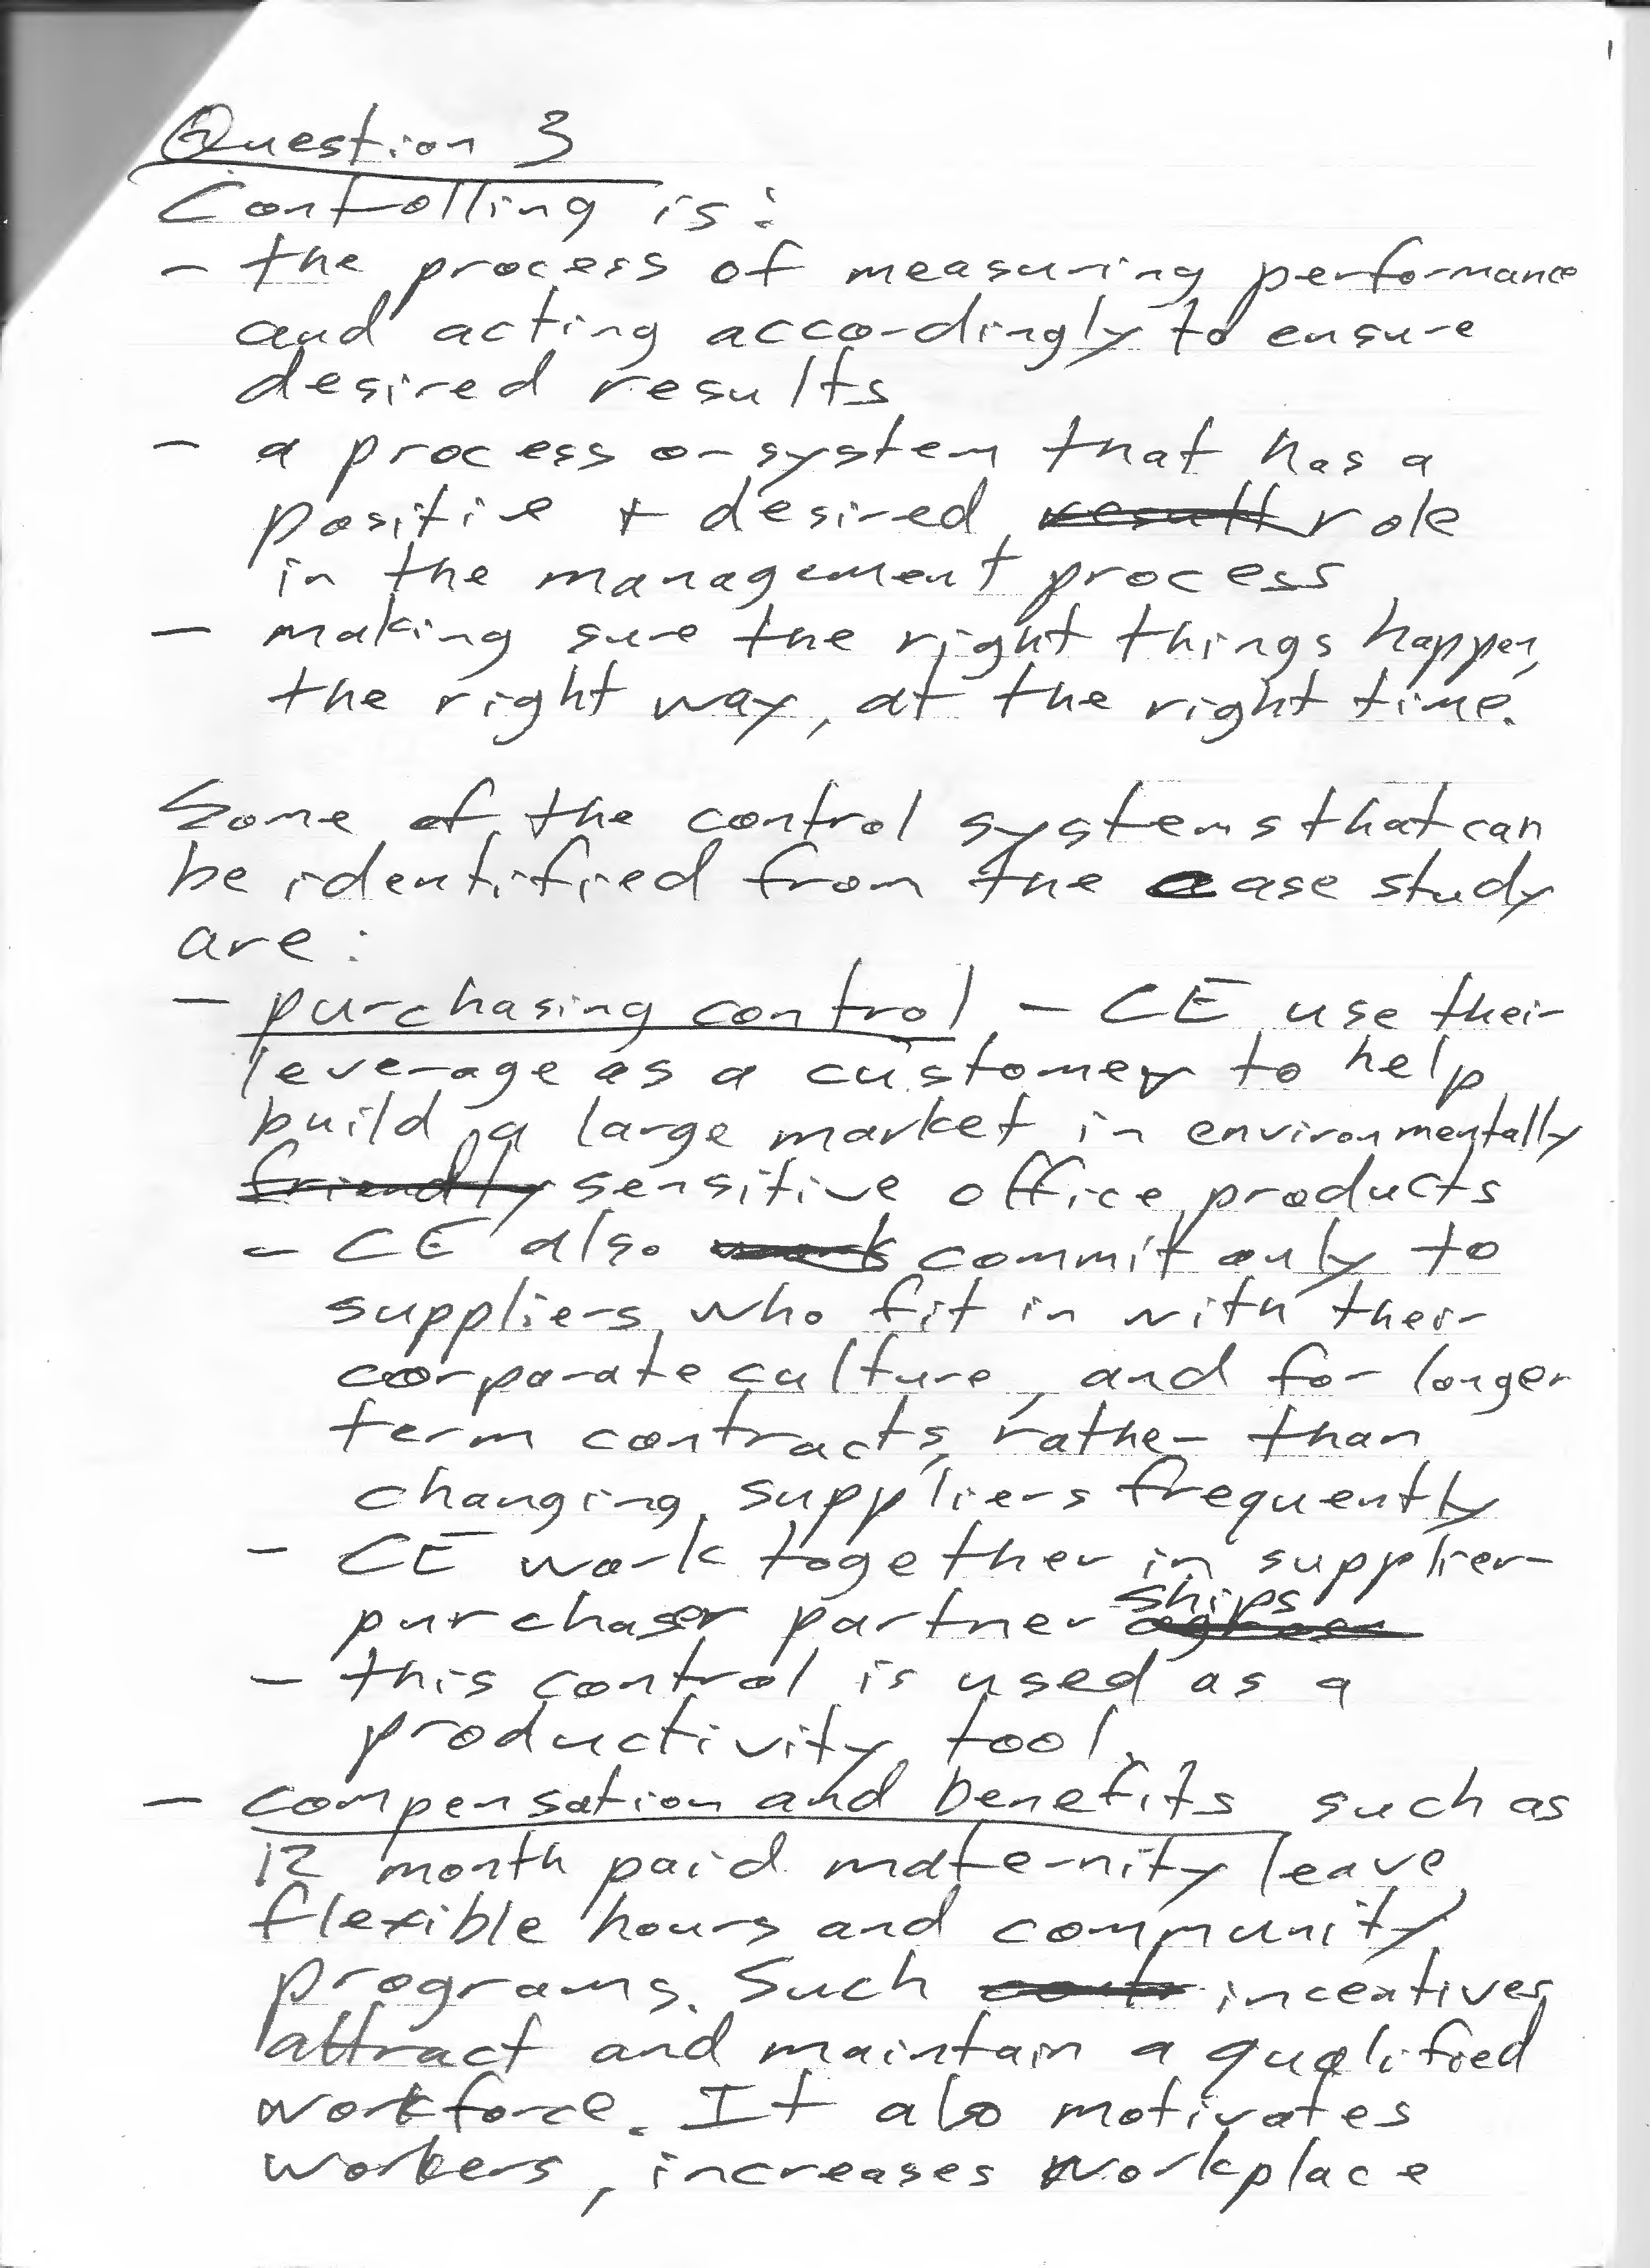 1
Question 3
Controlling is:
- the process of measuring performance
and acting accordingly to ensure
desired results
- a process or system that has a
positive + desired result role
in the management process
- making sure the right things happen,
the right way, at the right time.
Some of the control systems that can
be identified from the case study
are:
- purchasing control - CE use their
leverage as a customer to help
build a large market in environmentally
friendly sensitive office products
- CE also work commit only to
suppliers who fit in with their
corporate culture, and for longer
term contracts, rather than
changing suppliers frequently
- CE work together in supplier-
purchaser partnerships
- this control is used as a
productivity tool.
- compensation and benefits such as
12 month paid maternity leave,
flexible hours and community
programs. Such incentives
attract and maintain a qualified
workforce. It also motivates
workers, increases workplace